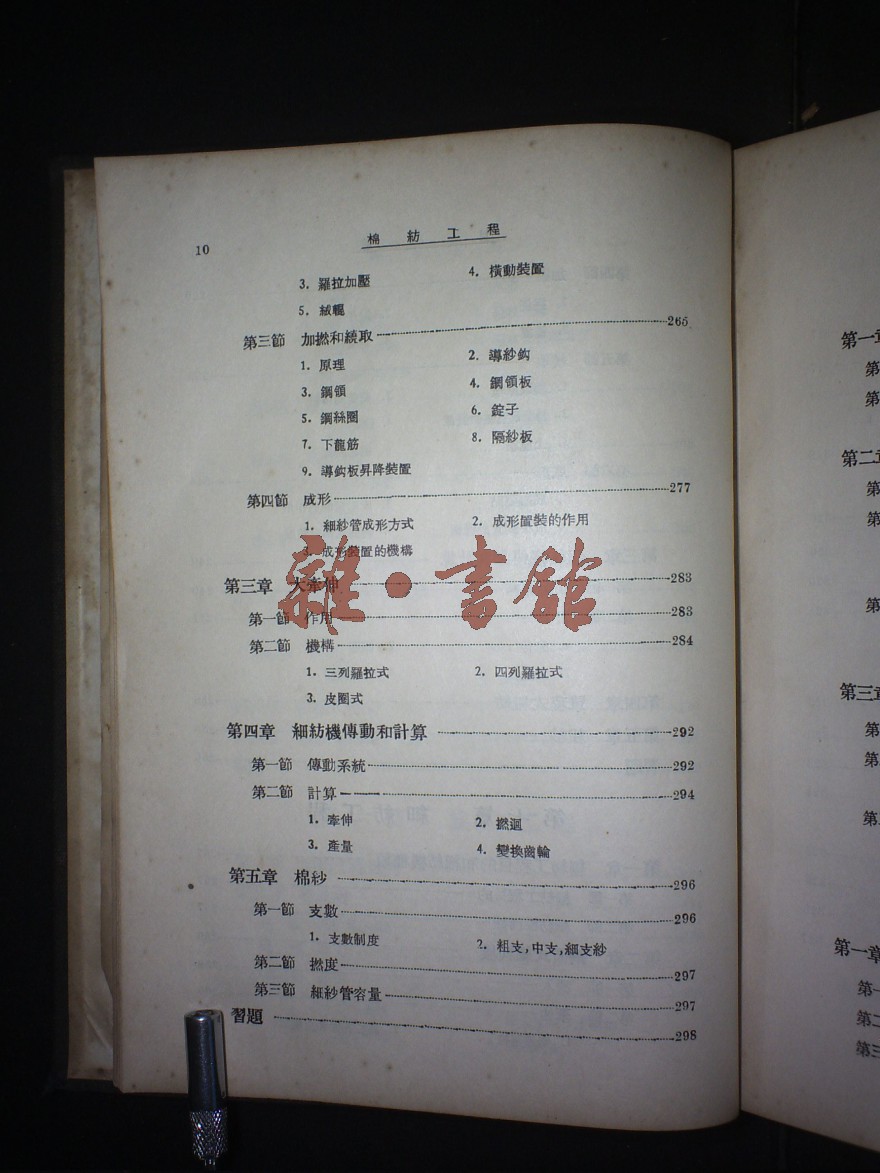 10 棉紡工程
3. 羅拉加壓 4. 橫動裝置
5. 絨輥
第三節 加撚和繞取 265
1. 原理 2. 導紗鈎
3. 鋼領 4. 鋼領板
5. 鋼絲圈 6. 錠子
7. 下龍筋 8. 隔紗板
9. 導鈎板昇降裝置
第四節 成形 277
1. 細紗管成形方式 2. 成形置裝的作用
3. 成形裝置的機構
第三章 大牽伸 283
第一節 作用 283
第二節 機構 284
1. 三列羅拉式 2. 四列羅拉式
3. 皮圈式
第四章 細紡機傳動和計算 292
第一節 傳動系統 292
第二節 計算 294
1. 牽伸 2. 撚迴
3. 產量 4. 變換齒輪
第五章 棉紗 296
第一節 支數 296
1. 支數制度 2. 粗支,中支,細支紗
第二節 撚度 297
第三節 細紗管容量 297
習題 298
雜·書館
第一章
第
第
第二章
第
第
第
第三章
第
第
第
第一章
第一
第二
第三